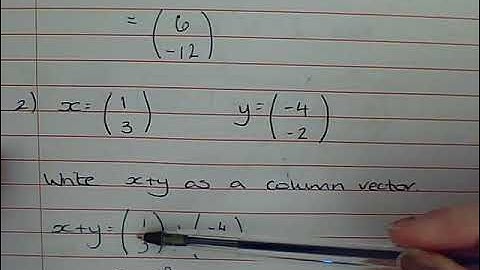 = (6
-12)
2) x = (1
3) y = (-4
-2)
Write x+y as a column vector.
x+y = (1
3) + (-4